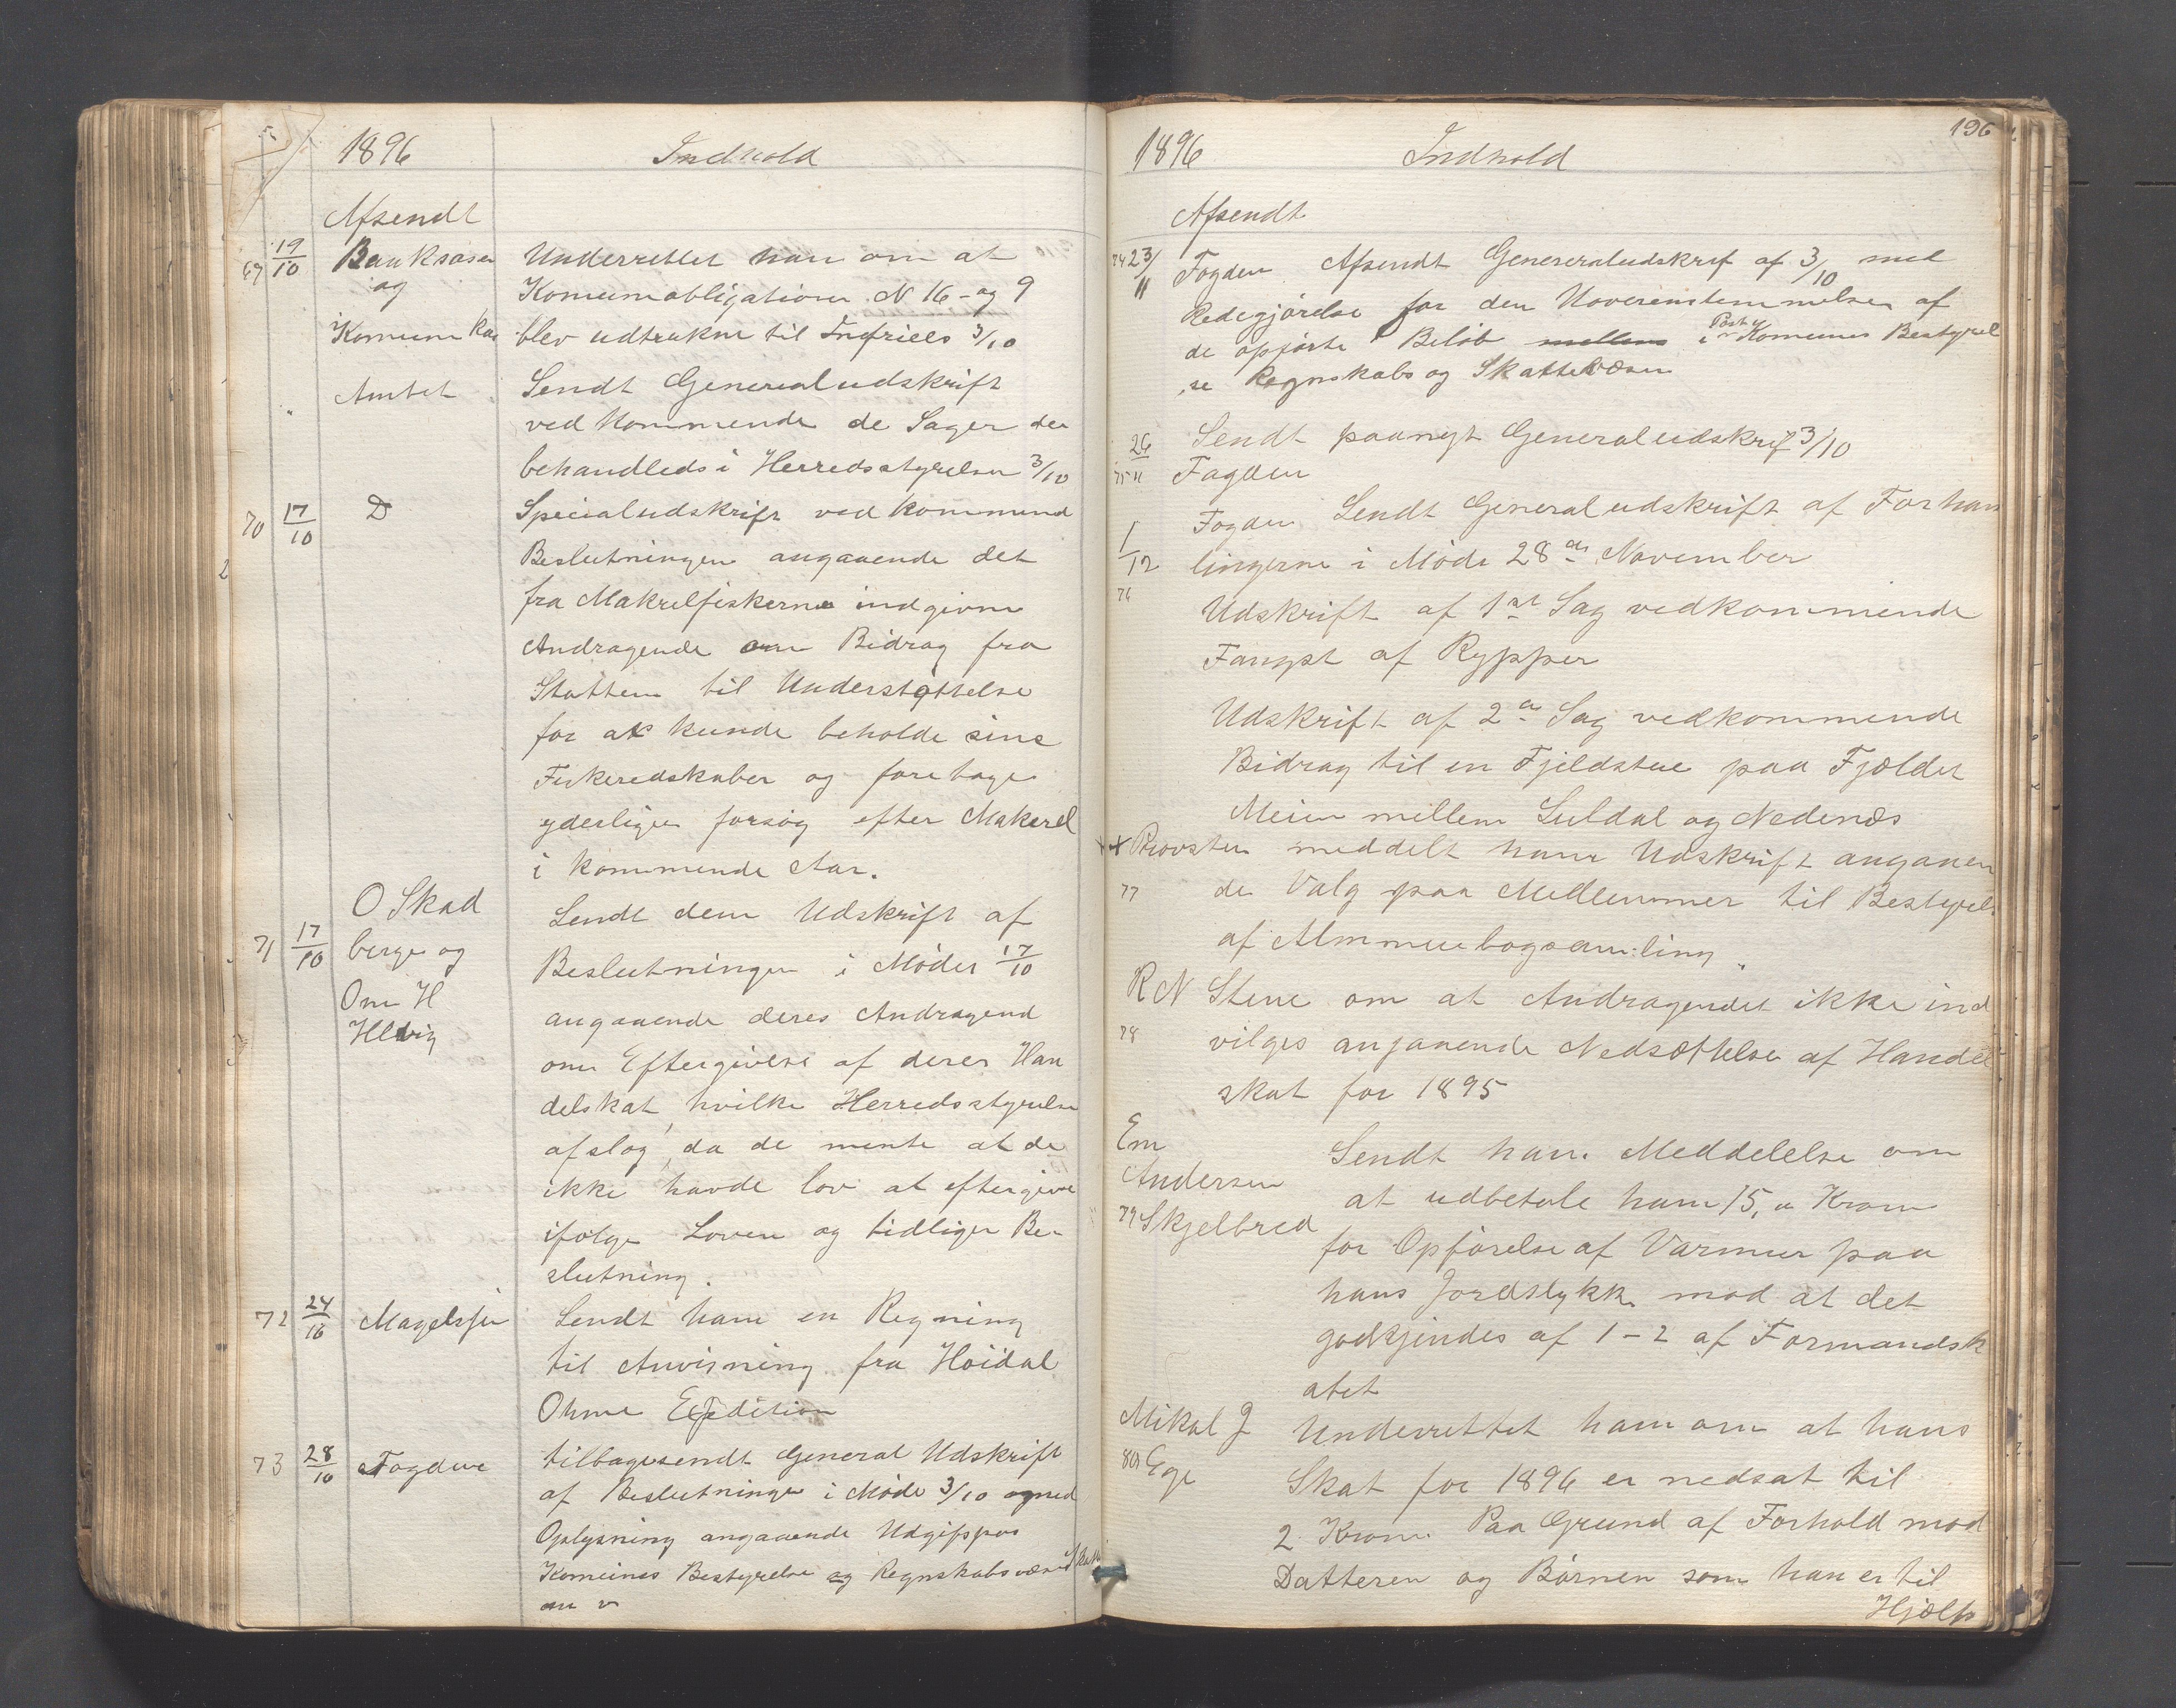 1896 Indhold
Afsendt
69 19/10 Banksasen Underrettet han om at
og Komunobligationer N 16 - og 9
Komune Kas blev udtrukne til Indfriels 3/10
" Amtet Sendt Generaludskrift
vedkommende de Sager der
behandleds i Herredsstyrelsen 3/10
70 17/10 D Specialudskrift vedkommend
Beslutningen angaaende det
fra Makrelfiskerne indgivne
Andragende om Bidrag fra
Statten til Understøttelse
for at kunde beholde sine
Fiskeredskaber og foretage
yderligere forsøg efter Makerel
i kommende Aar.
O Skad Sendt dem Udskrift af
71 17/10 berge og Beslutningen i Mødet 17/10
Om H angaaende deres Andragend
Helvig
om Eftergivelse af deres Han
delskat, hvilke Herredsstyrelse
afslog, da de mente at de
ikke havde lov at eftergive
ifølge Loven og tidliger Be-
slutning.
72 24/10 Magelssen Sendt ham en Regning
til Anvisning fra Höidal
Ohme Expedition
73 28/10 Fogden tilbagesendt General Udskrift
af Beslutninge i Møde 3/10 og med
Oplysning angaaende Udgifspos
Komunes Bestyrelse og Regnskabsvæsen Skat
m v
196
1896 Indhold
Afsendt
74 23/11 Fogden Afsendt Genereraludskrif af 3/10 med
Redegjørelse for den Uoverenstemmelse af
de opførte Beløb mellem i Post Komunes Bestyrel
se Regnskabs og Skattevæsen
26 Sendt paanyt Generaludskrif 3/10
75 11 Fogden
1/12 Fogden Sendt Generaludskrift af Forhan
lingerne i Møde 28de November
76
Udskrift af 1ste Sag vedkommende
Fangst af Rypper
Udskrift af 2den Sag vedkommende
Bidrag til en Fjeldstue paa Fjældet
Meien mellem Suldal og Nedenæs
+ Provsten meddelt ham Udskrift angaaen
77 de Valg paa Medlemmer til Bestyrels
af Almuebogsamling
R N Stene om at Andragendet ikke ind
78 vilges angaaende Nedsættelse af Handel
skat for 1895
Em Sendt han. Meddelelse om
Andersen at udbetale ham 15, " Kroner
79 Skjelbred for Opførelse af Varmur paa
hans Jordstykke mod at det
godkjendes af 1 - 2 af Formandsk
abet
Mikal J Underrettet ham om at hans
80 Ege Skat for 1896 er nedsat til
2 Kroner. Paa Grund af Forhold mod
Datteren og Børnen som han er til
Hjælp